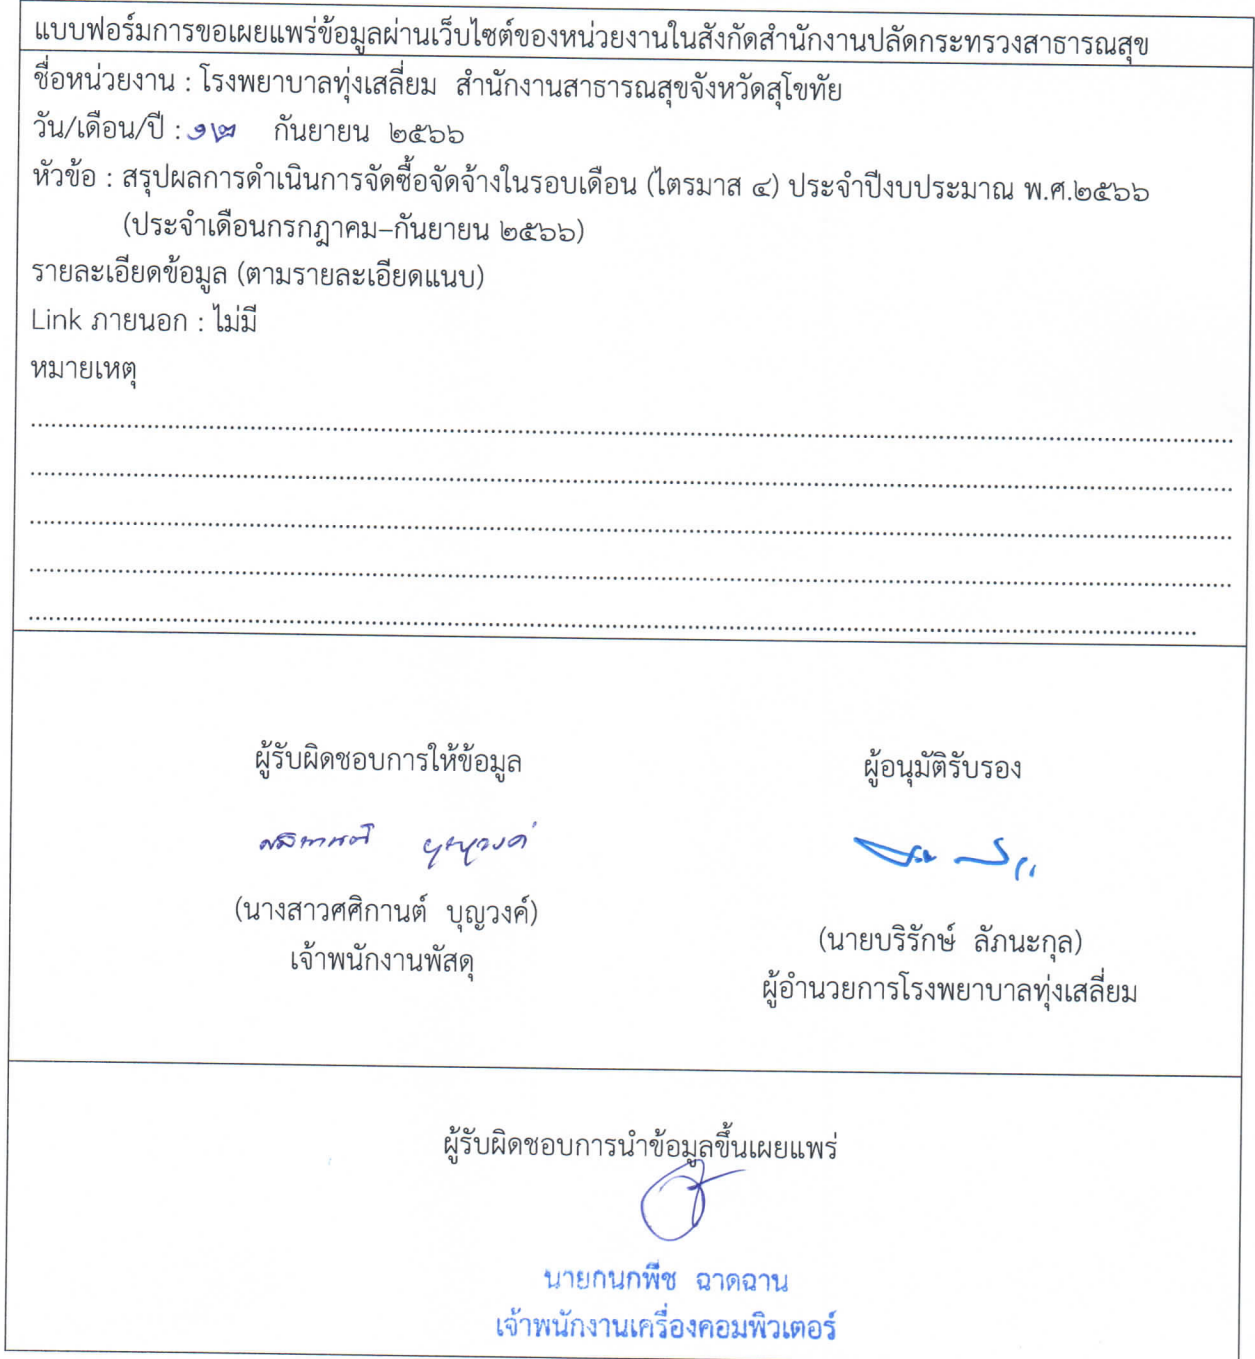 แบบฟอร์มการขอเผยแพร่ข้อมูลผ่านเว็บไซต์ของหน่วยงานในสังกัดสำนักงานปลัดกระทรวงสาธารณสุข
ชื่อหน่วยงาน : โรงพยาบาลทุ่งเสลี่ยม สำนักงานสาธารณสุขจังหวัดสุโขทัย
วัน/เดือน/ปี : ๑๒ กันยายน ๒๕๖๖
หัวข้อ : สรุปผลการดำเนินการจัดซื้อจัดจ้างในรอบเดือน (ไตรมาส ๔) ประจำปีงบประมาณ พ.ศ.๒๕๖๖
(ประจำเดือนกรกฎาคม–กันยายน ๒๕๖๖)
รายละเอียดข้อมูล (ตามรายละเอียดแนบ)
Link ภายนอก : ไม่มี
หมายเหตุ
ผู้รับผิดชอบการให้ข้อมูล
ศศิกานต์ บุญวงค์
(นางสาวศศิกานต์ บุญวงค์)
เจ้าพนักงานพัสดุ
ผู้อนุมัติรับรอง
(นายบริรักษ์ ลัภนะกุล)
ผู้อำนวยการโรงพยาบาลทุ่งเสลี่ยม
ผู้รับผิดชอบการนำข้อมูลขึ้นเผยแพร่
นายกนกพืช ฉาดฉาน
เจ้าพนักงานเครื่องคอมพิวเตอร์